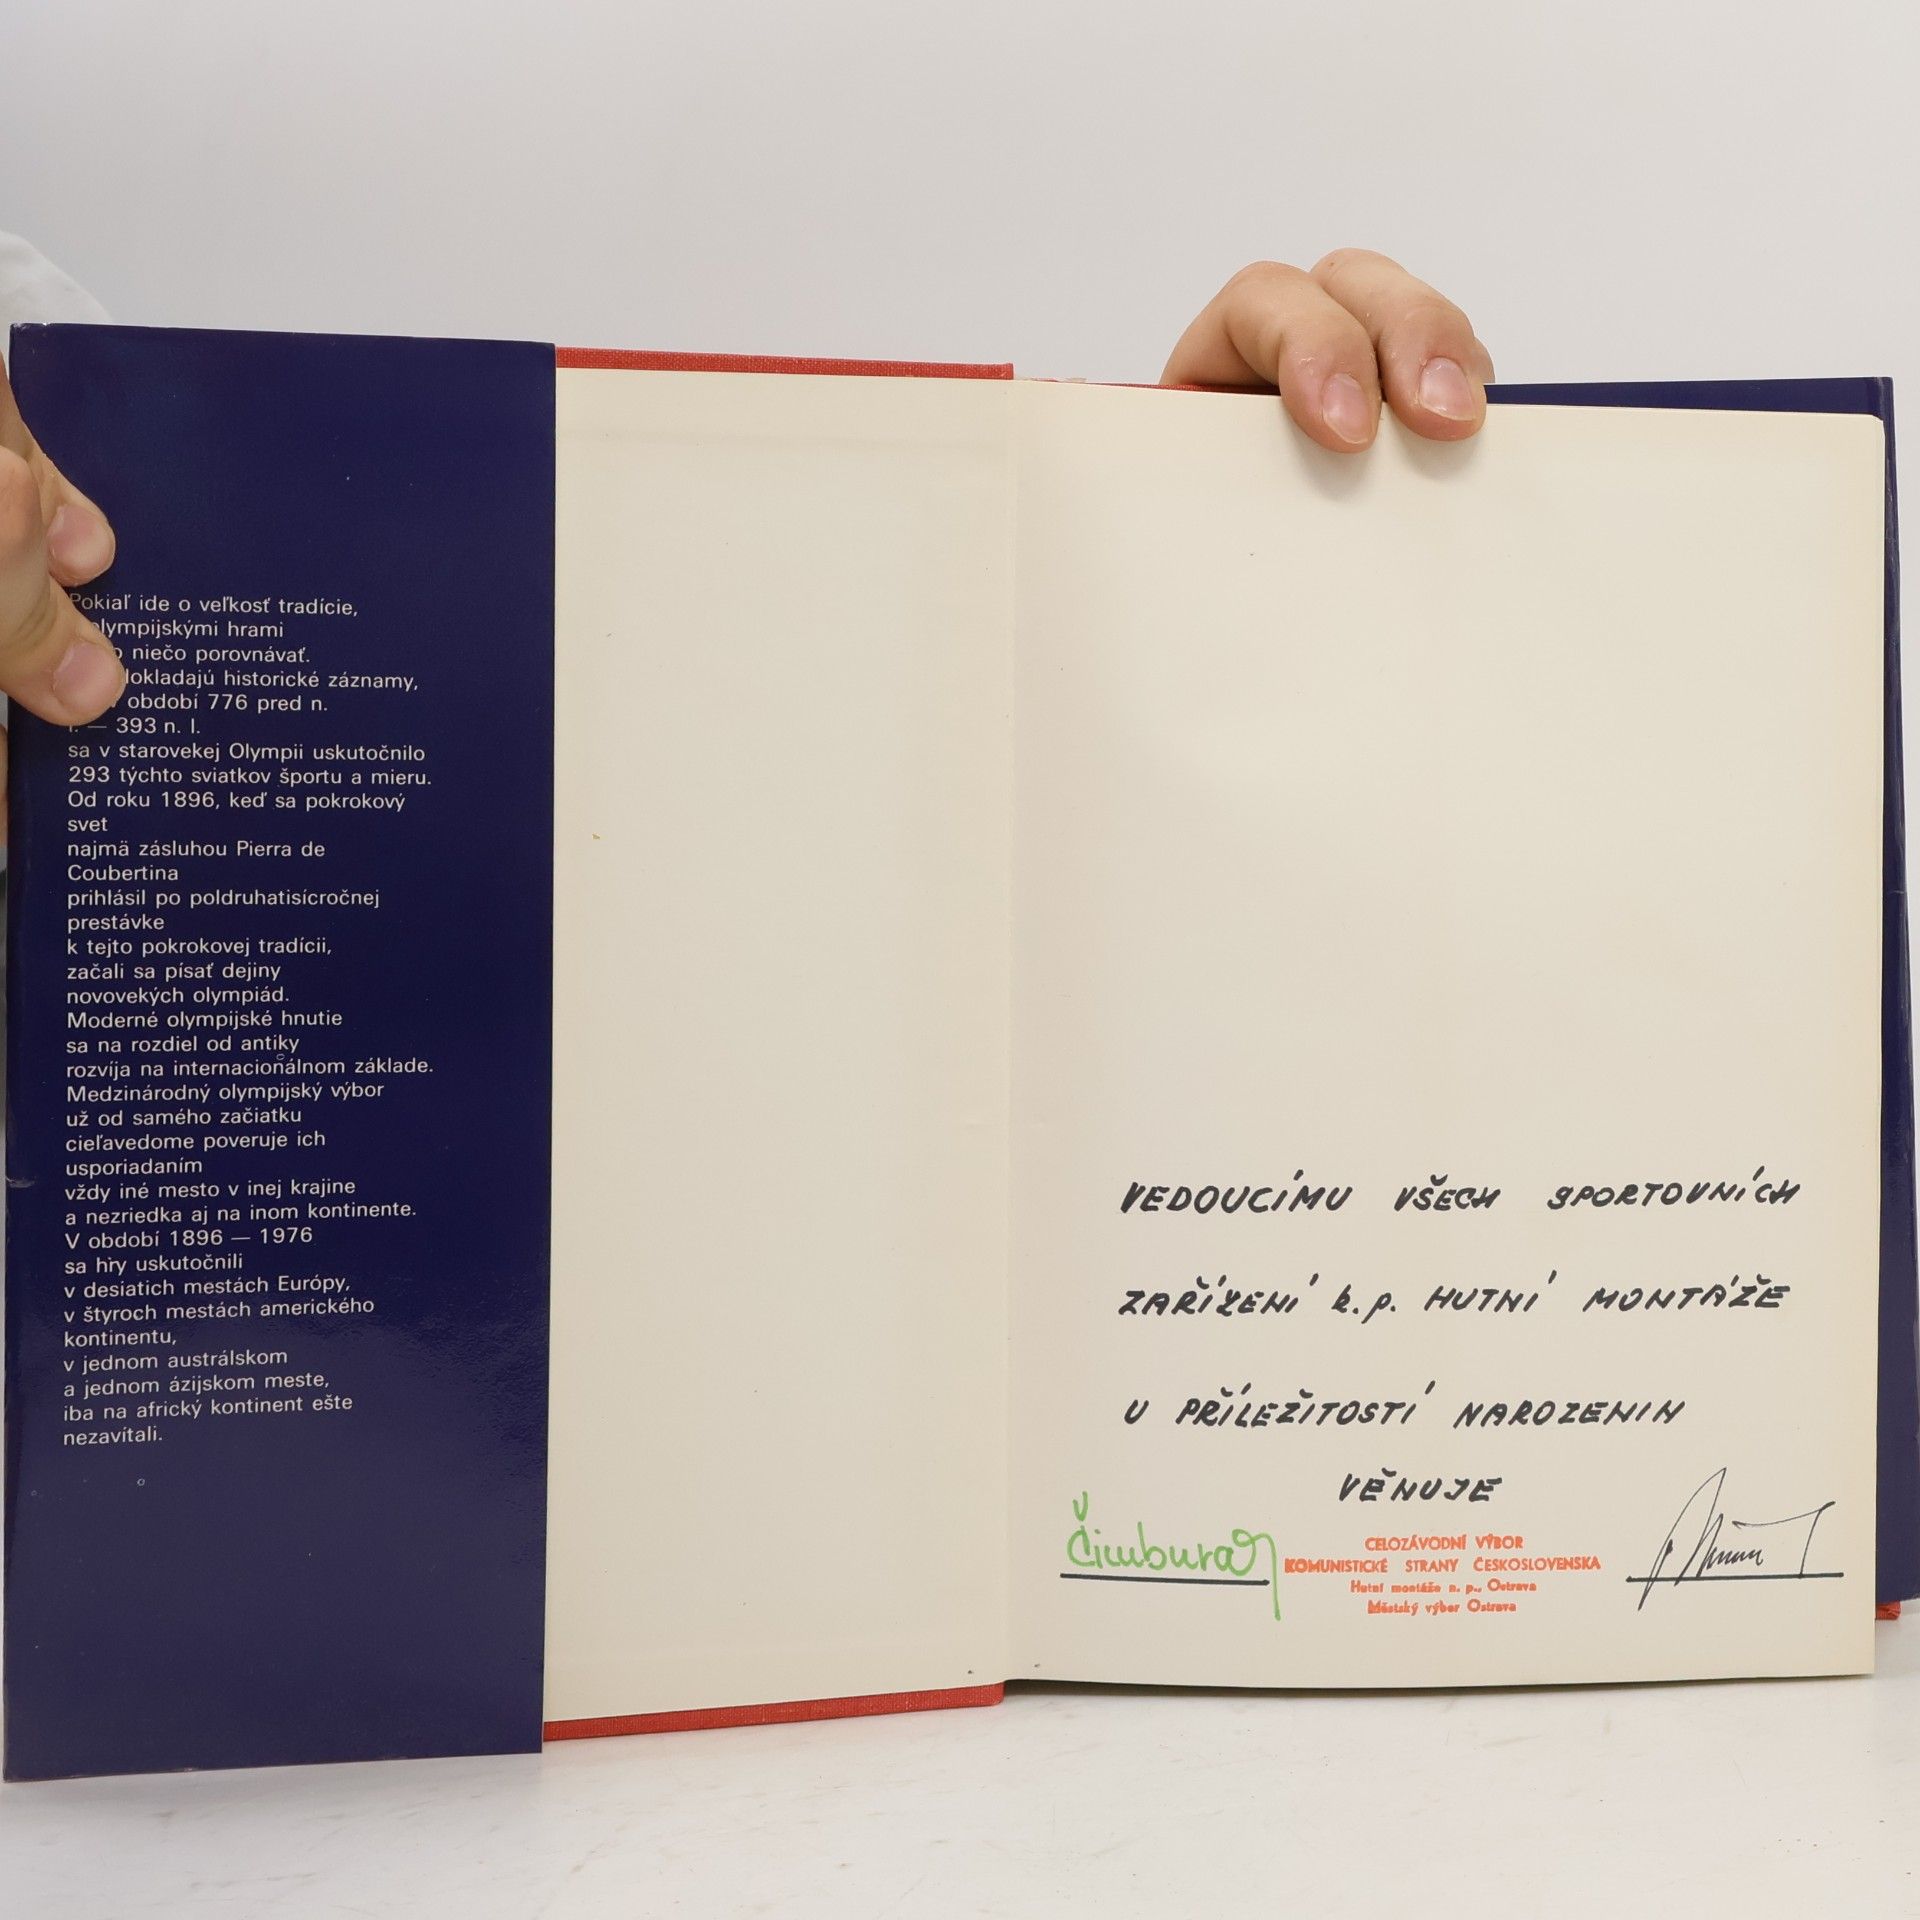 Pokiaľ ide o veľkosť tradície,
olympijskými hrami
niečo porovnávať.
dokladajú historické záznamy,
v období 776 pred n.
l. — 393 n. l.
sa v starovekej Olympii uskutočnilo
293 týchto sviatkov športu a mieru.
Od roku 1896, keď sa pokrokový
svet
najmä zásluhou Pierra de
Coubertina
prihlásil po poldruhatisícročnej
prestávke
k tejto pokrokovej tradícii,
začali sa písať dejiny
novovekých olympiád.
Moderné olympijské hnutie
sa na rozdiel od antiky
rozvíja na internacionálnom základe.
Medzinárodný olympijský výbor
už od samého začiatku
cieľavedome poveruje ich
usporiadaním
vždy iné mesto v inej krajine
a nezriedka aj na inom kontinente.
V období 1896 — 1976
sa hry uskutočnili
v desiatich mestách Európy,
v štyroch mestách amerického
kontinentu,
v jednom austrálskom
a jednom ázijskom meste,
iba na africký kontinent ešte
nezavítali.
VEDOUCÍMU VŠECH SPORTOVNÍCH
ZAŘÍZENÍ k.p. HUTNÍ MONTÁŽE
U PŘÍLEŽITOSTÍ NAROZENIN
VĚNUJE
Čimbura
CELOZÁVODNÍ VÝBOR
KOMUNISTICKÉ STRANY ČESKOSLOVENSKA
Hutní montáže n. p., Ostrava
Městský výbor Ostrava